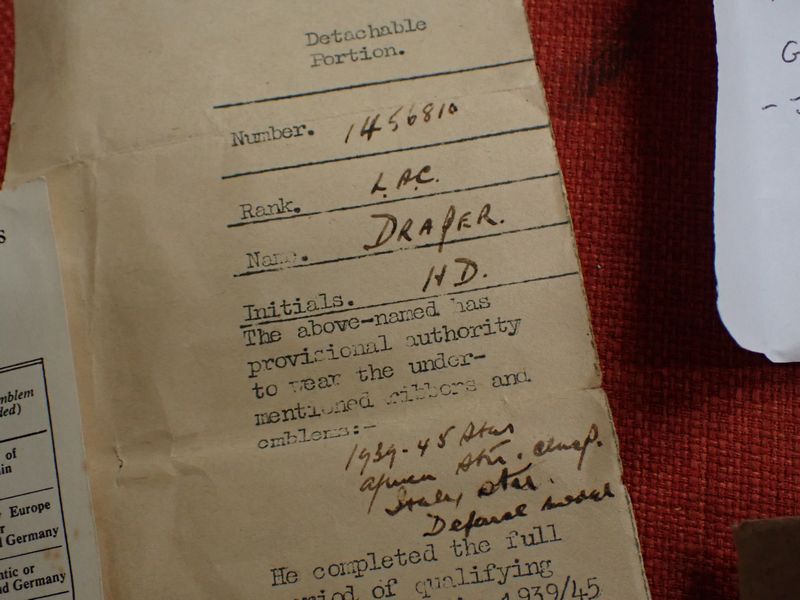 Detachable
Portion.
Number. 1456810
Rank. L.A.C.
Name. DRAPER.
Initials. H D.
The above-named has
provisional authority
to wear the under-
mentioned ribbons and
emblems:-
1939-45 Star
Africa Star. clasp.
Italy Star.
Defence medal
He completed the full
period of qualifying
1939/45
S
emblem
ded)
of
Europe
r
d Germany
ntic or
nd Germany
G